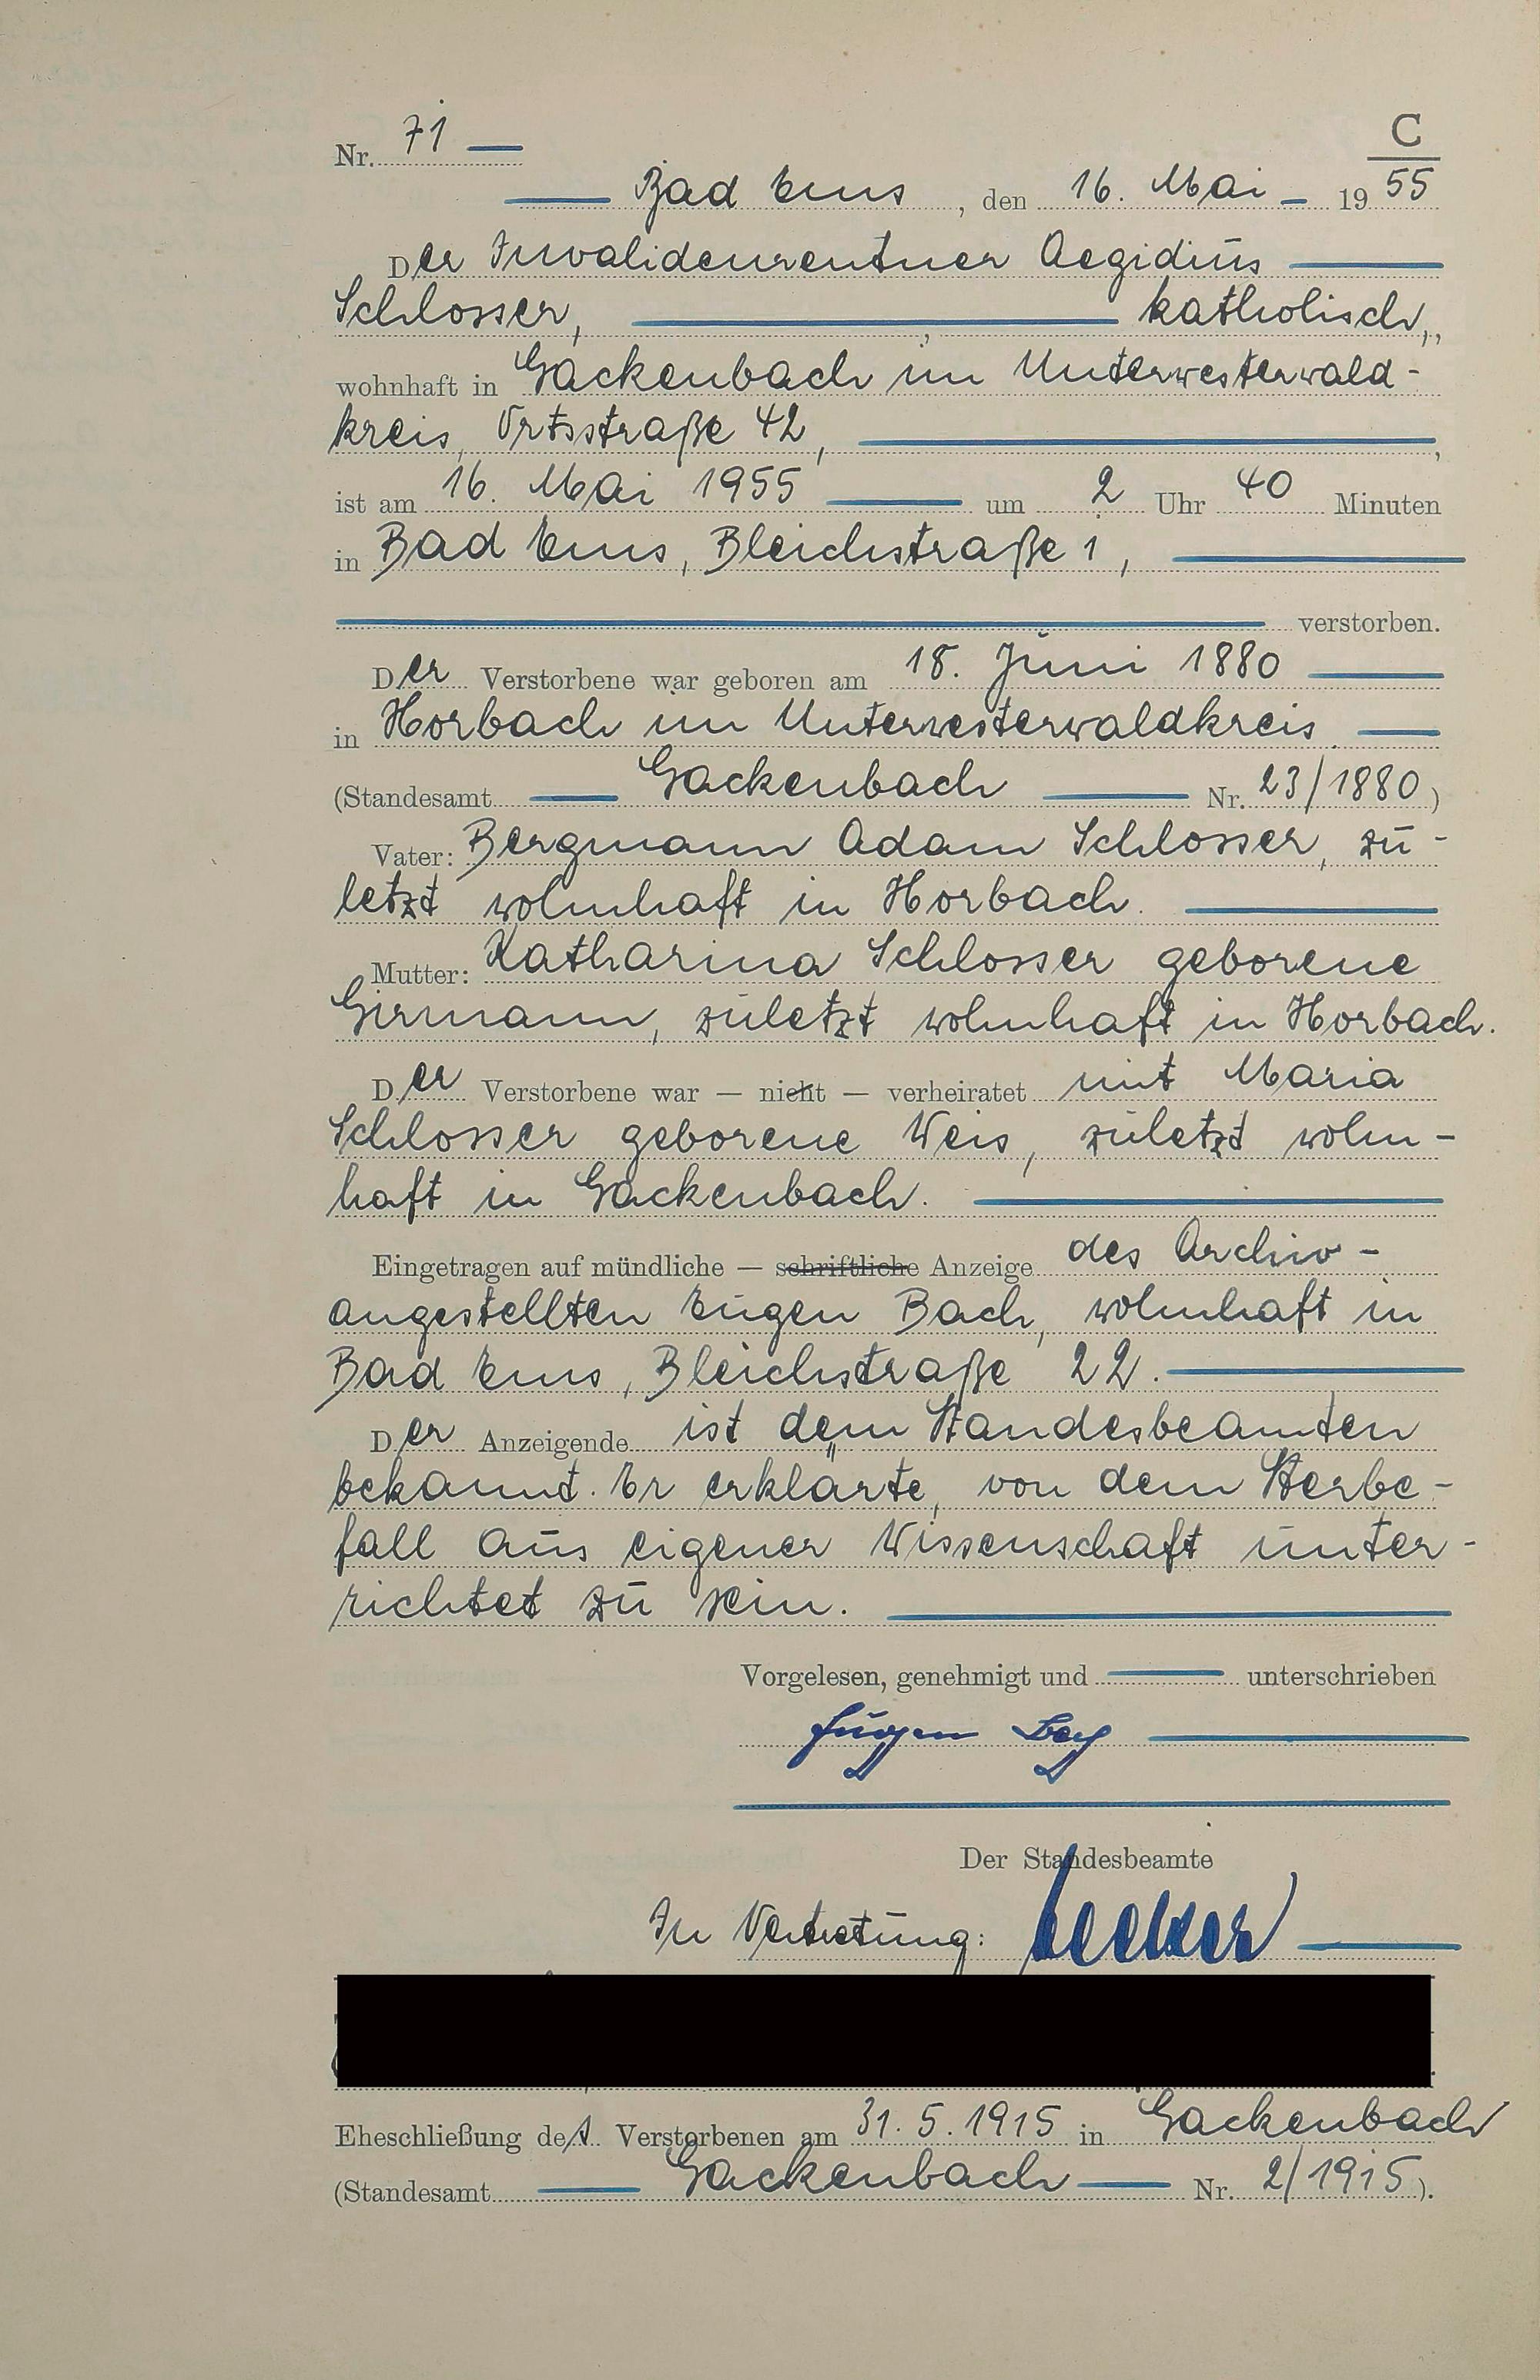 Nr. 71
C
Bad Ems, den 16. Mai 1955
Der Invalidenrentner Aegidius
Schlosser, katholisch,
wohnhaft in Gackenbach im Unterwesterwald-
kreis, Ortsstraße 42,
ist am 16. Mai 1955 um 2 Uhr 40 Minuten
in Bad Ems, Bleichstraße 1,
verstorben.
Der Verstorbene war geboren am 18. Juni 1880
in Horbach im Unterwesterwaldkreis
(Standesamt Gackenbach Nr. 23/1880)
Vater: Bergmann Adam Schlosser, zu-
letzt wohnhaft in Horbach.
Mutter: Katharina Schlosser geborene
Girmann, zuletzt wohnhaft in Horbach.
Der Verstorbene war — nicht — verheiratet mit Maria
Schlosser geborene Weis, zuletzt wohn-
haft in Gackenbach.
Eingetragen auf mündliche — schriftliche Anzeige des Archiv-
angestellten Eugen Bach, wohnhaft in
Bad Ems, Bleichstraße 22.
Der Anzeigende ist dem Standesbeamten
bekannt. Er erklärte, von dem Sterbe-
fall aus eigener Wissenschaft unter-
richtet zu sein.
Vorgelesen, genehmigt und unterschrieben
Eugen Bach
Der Standesbeamte
In Vertretung:
Eheschließung des Verstorbenen am 31.5.1915 in Gackenbach
(Standesamt Gackenbach Nr. 2/1915).